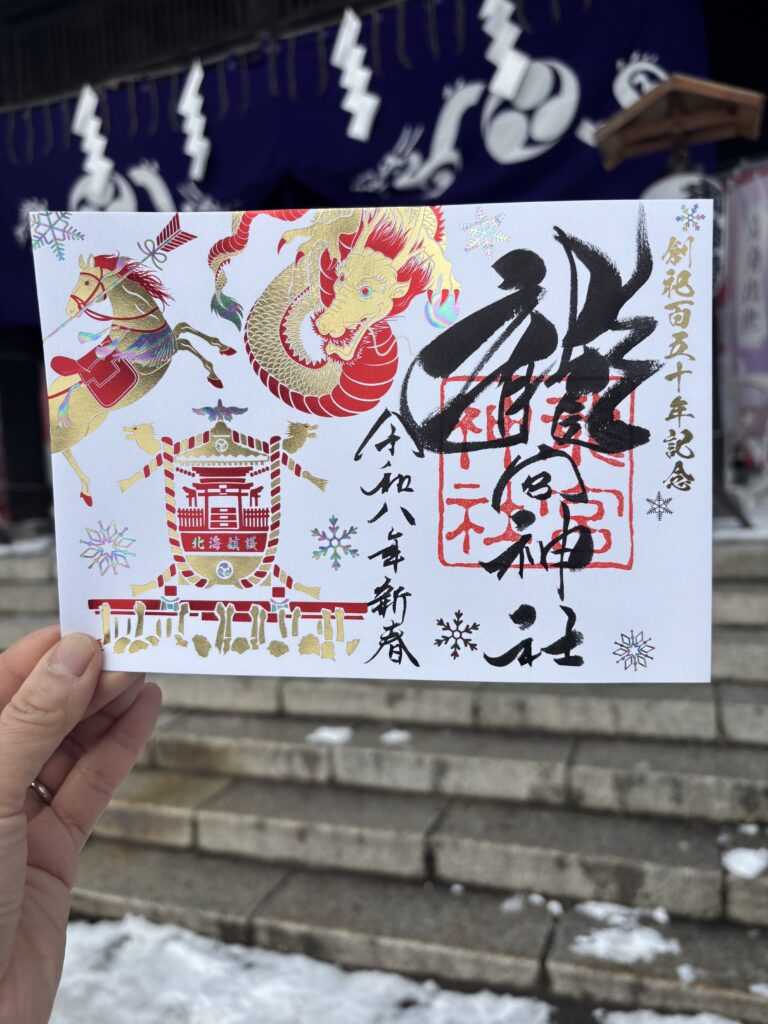 創祀百五十年記念
龍宮神社
龍宮神社
令和八年新春
北海鎮護